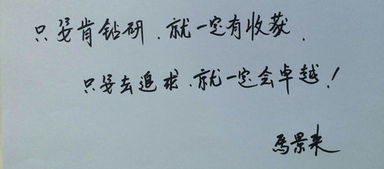 只要肯钻研.就一定有收获.
只要去追求.就一定会卓越!
马景来